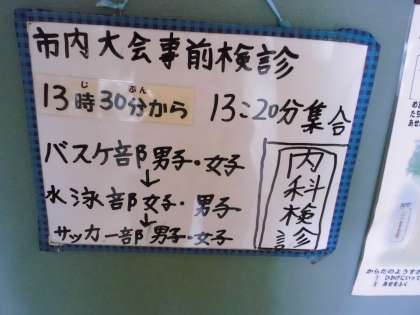 市内大会事前検診
じ ぶん
13時30分から 13:20分集合
バスケ部男子・女子
↓
水泳部女子・男子
↓
サッカー部男子・女子
内科検診
からだのようす